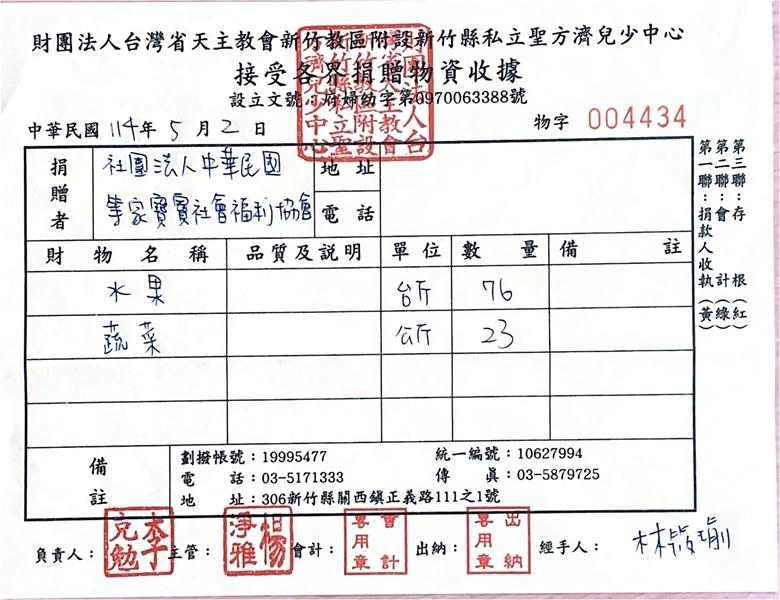 財團法人台灣省天主教會新竹教區附設新竹縣私立聖方濟兒少中心
接受各界捐贈物資收據
設立文號：府婦幼字第0970063388號
中華民國 114年 5月 2日
物字 004434
捐贈者 社團法人中華民國 地址
家寶寶社會福利協會 電話
財物名稱 品質及說明 單位 數量 備註
水果 台斤 76
蔬菜 公斤 23
備註
劃撥帳號：19995477 統一編號：10627994
電話：03-5171333 傳真：03-5879725
地址：306新竹縣關西鎮正義路111之1號
負責人： 李克勉 主管： 楊淨雅 會計： 會計專用章 出納： 出納專用章 經手人： 林
第一聯：捐款人收執(黃)
第二聯：會計(綠)
第三聯：存根(紅)
財團法人台灣省天主教會新竹教區附設新竹縣私立聖方濟兒少中心